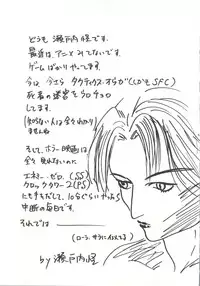 どうも 瀬戸内 怪です。
最近は、アニメ みてないです。
ゲームばかりやってます。
今は、今さら タクティクスオウガ(しかもSFC)
死者の迷宮をちょろちょろ
してます。
(知らない人は全くわかり
ませんね
そして、ホラー映画は
全く 見れないないのに
エネミー・ゼロ。(SS)
クロックタワー2(PS)
にも手をだして、10分ぐらいやったら
中断の毎日です。
それでは
(ローラ、サラに似てる)
by 瀬戸内怪